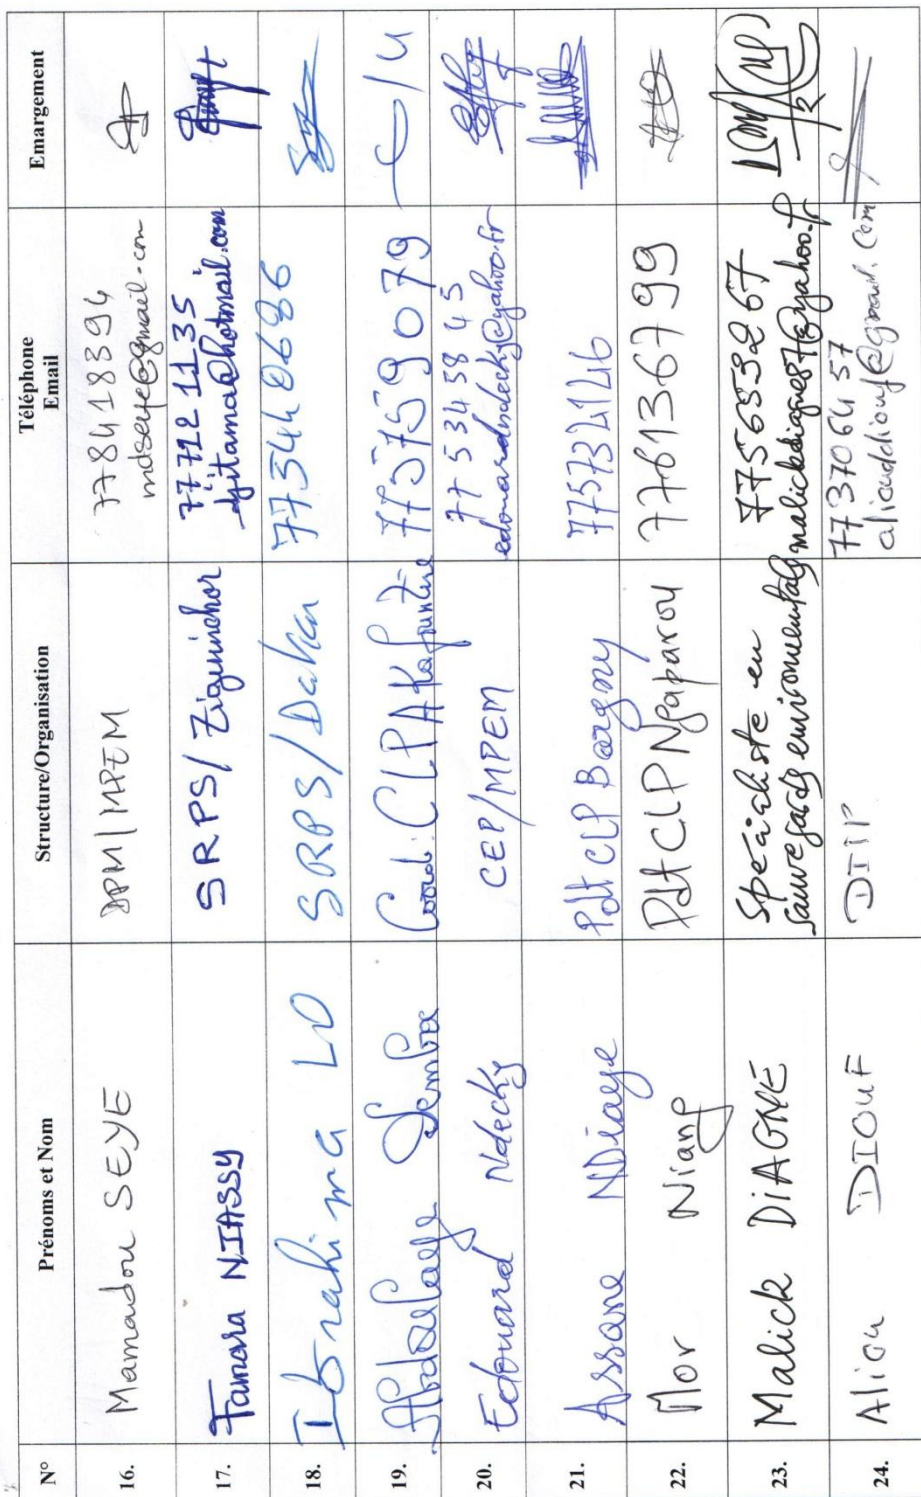 N° Prénoms et Nom Structure/Organisation Téléphone Email Emargement
16. Mamadou SEYE DPM/MPEM 77 841 83 94
mdseye@gmail.com
17. Famara NIASSY SRPS/Ziguinchor 77 712 11 35
djitama@hotmail.com
18. Ibrahima LO SRPS/Dakar
19. Abdoulaye Demba Coord. CLPA Kafountine 775759079
20. Edouard Ndecky CEP/MPEM 77 534 58 45
edouardndecky@yahoo.fr
21. Assane NDiaye Pdt CLP Bargny
22. Mor Niang Pdt CLP Ngaparou 776136799
23. Malick DiAGNE Spécialiste en 775653267
sauvegarde environnementale malickdiagne87@yahoo.fr
24. Aliou DIOUF DITP 77 370 64 57
alioudiouf@gmail.com